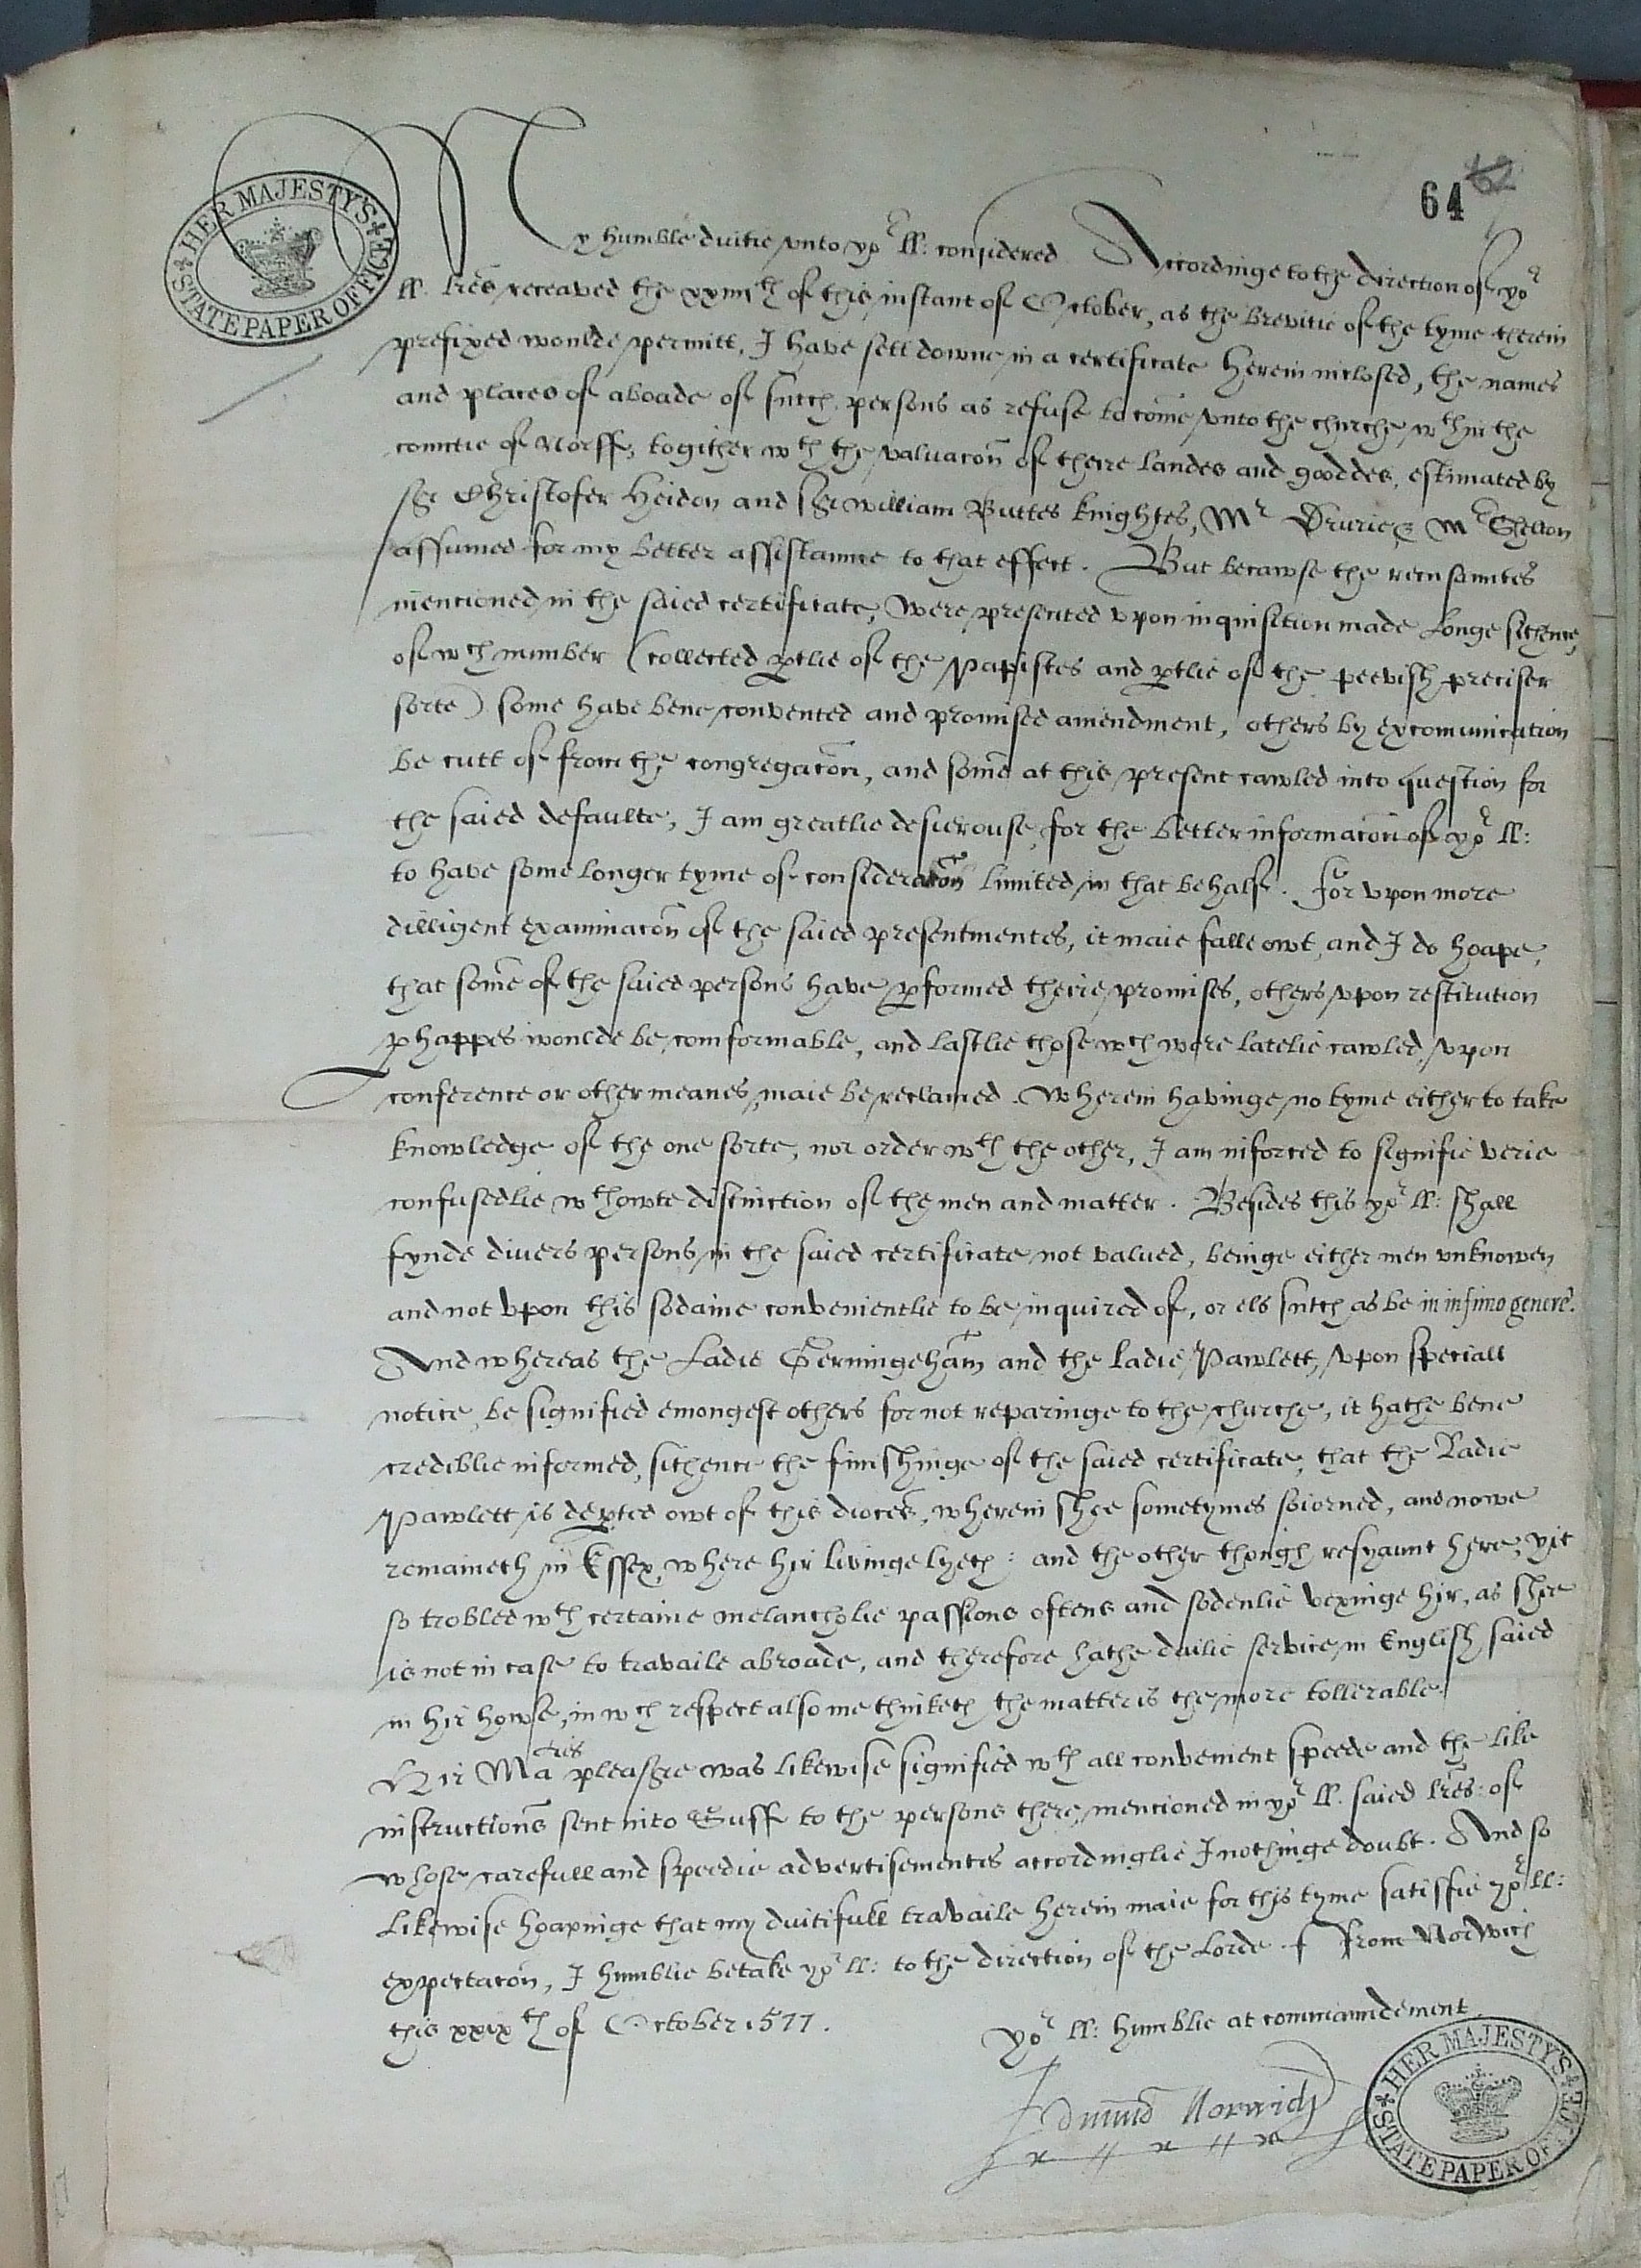 64 62
HER MAJESTY'S STATE PAPER OFFICE
My humble duitie vnto yor ll: considered. Accordinge to the direction of yor
ll. lres receaved the xxiiiith of this instant of October, as the brevitie of the tyme therein
prefixed woulde permitt, I have sett downe in a certificate herein inclosed, the names
and places of aboade of sutch persons as refuse to come vnto the churche wthin the
countie of Norff, togither wth the valuacon of theire landes and gooddes, estimated by
Sr Christofer Heidon and Sr William Buttes knightes, Mr Drurie & Mr Shelton
assumed for my better assistaunce to that effect. But becawse the recusauntes
mencioned in the saied certificate, were presented vpon inquisition made longe sithence,
of wch number (collected ptlie of the papistes and ptlie of the peevish preciser
sorte) some have bene convented and promised amendment, others by excomunication
be cutt of from the congregacon, and some at this present cawled into question for
the saied defaulte, I am greatlie desierouse, for the better informacon of yor ll:
to have some longer tyme of consideracon limited in that behalf. For vpon more
dilligent examinacon of the saied presentmentes, it maie falle owt, and I do hoape,
that some of the saied persons have pformed theire promises, others vpon restitution
phappes woulde be comformable, and lastlie those wch were latelie cawled, vpon
conference or other meanes, maie be reclamed. Wherein havinge no tyme either to take
knowledge of the one sorte, nor order wth the other, I am inforced to signifie verie
confusedlie wthowte distinction of the men and matter. Besides this yor ll: shall
fynde divers persons in the saied certificate not valued, beinge either men vnknowen
and not vpon this sodaine convenientlie to be inquired of, or els sutch as be in infimo genere.
And whereas the Ladie Gerningeham and the ladie Pawlett, vpon speciall
notice, be signified emongest others for not reparinge to the churche, it hathe bene
crediblie informed, sithence the finishinge of the saied certificate, that the Ladie
Pawlett is depted owt of this dioces, wherein shee sometymes soiorned, and nowe
remaineth in Essex, where hir livinge lyeth: and the other though resyaunt here, yit
so trobled wth certaine melancholie passions oftens and sodenlie vexinge hir, as shee
is not in case to travaile abroade, and therefore hathe dailie service in English saied
in hir howse, in wch respect also me thinketh the matter is the more tollerable.
Hir Maties pleasure was likewise signified wth all convenient speede and the like
instructions sent into Suff to the persons there mencioned in yor ll. saied lres: of
whose carefull and speedie advertisementes accordinglie I nothinge doubt. And so
likewise hoapinge that my duitifull travaile herein maie for this tyme satisfie yor ll:
expectacon, I humblie betake yor ll: to the direction of the Lorde. From Norwich
this xxixth of October 1577.
yor ll: humblie at commaundement.
Edmund Norwich
HER MAJESTY'S STATE PAPER OFFICE